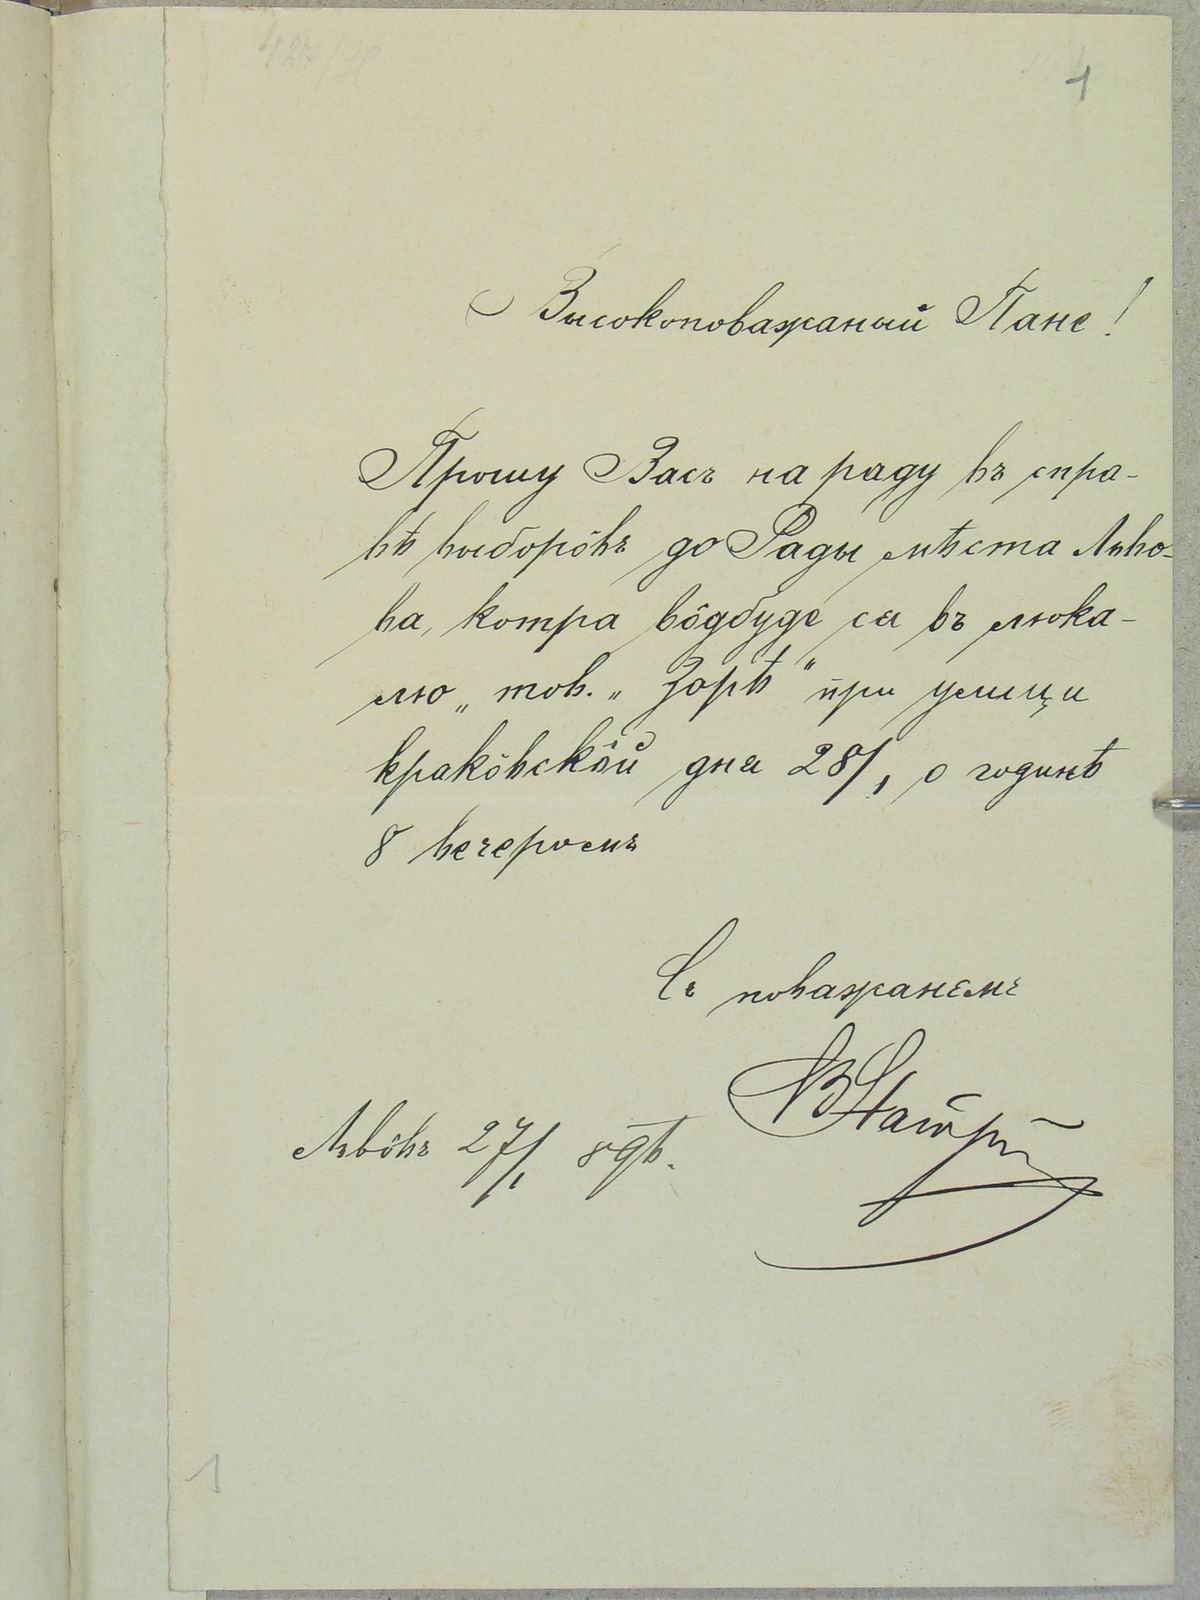 1
Высокоповажаный Пане!
Прошу Васъ на раду въ спра-
вѣ выборôвъ до Рады мѣста Льво-
ва, котра вôдбуде ся въ люка-
лю „тов. „Зорѣ" при улици
кракôвскôй дня 28/1 о годинѣ
8 вечеромъ
Съ поважанємъ
Львôвъ 27/1
1